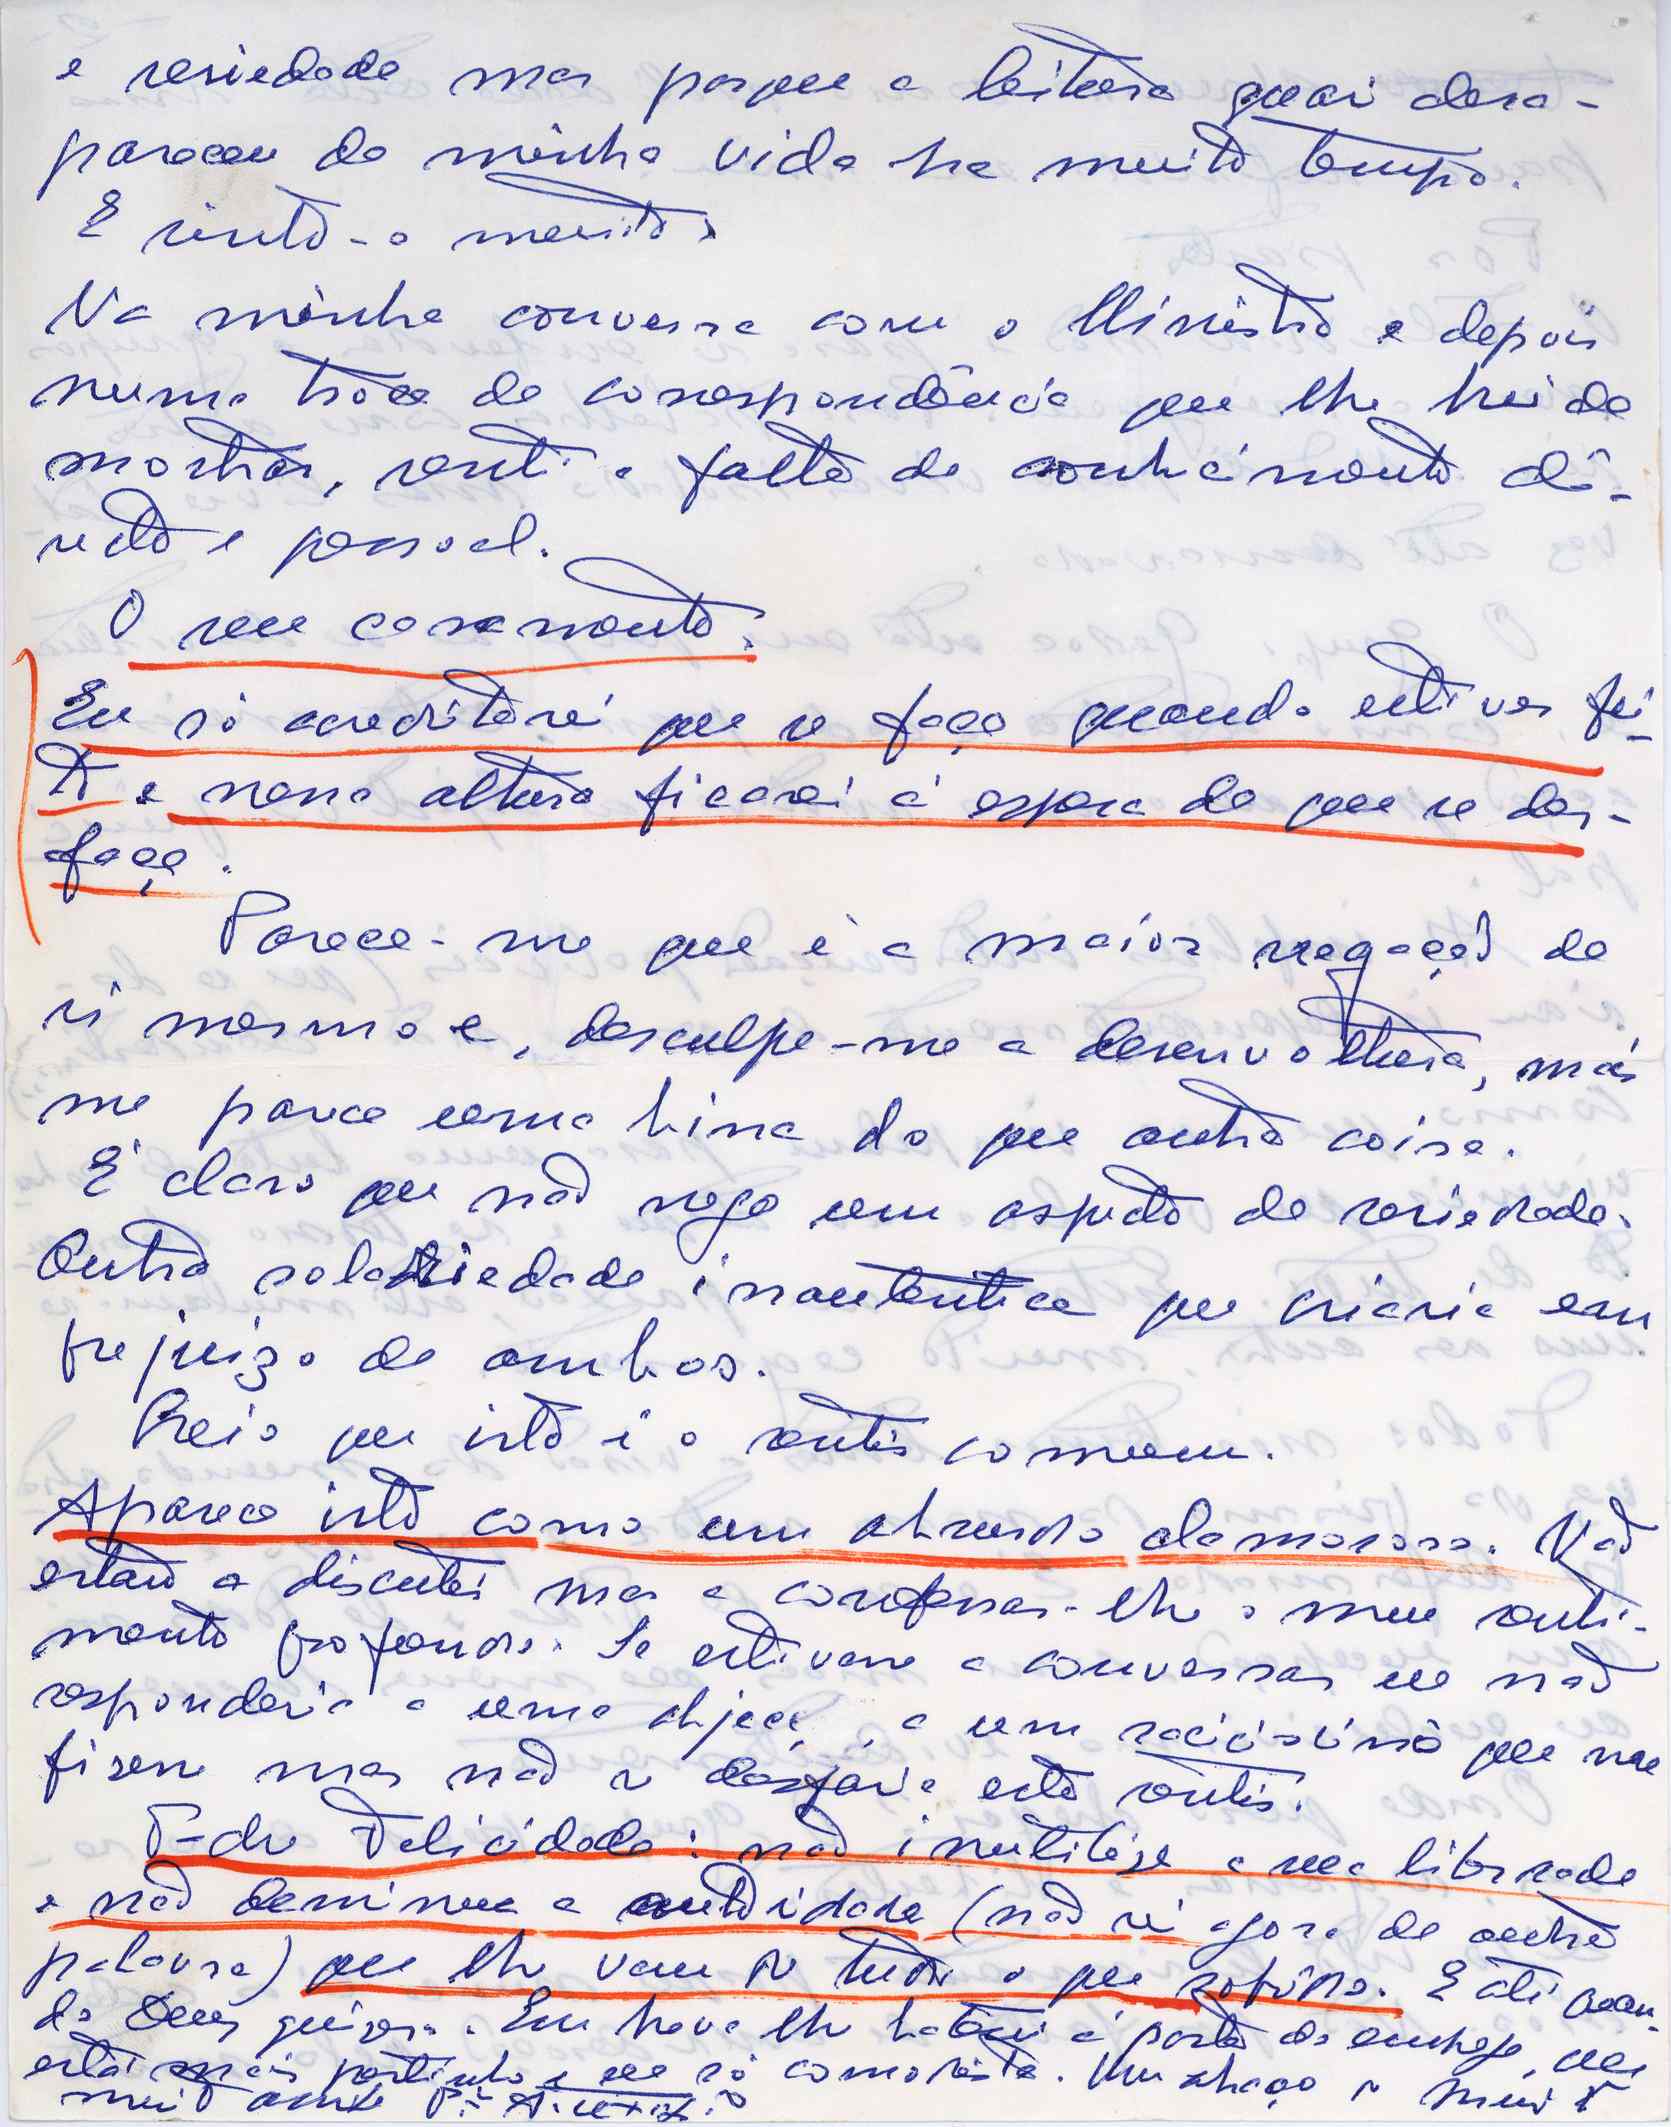 e seriedade mas porque a leitura quasi desa-
pareceu da minha vida ha muito tempo.
E sinto-o muito.
Na minha conversa com o Ministro e depois
numa troca de correspondência que lhe hei de
mostrar, senti a falta de conhecimento di-
recto e pessoal.
O seu casamento.
Eu só acreditarei que se faça quando estiver fei-
to e nessa altura ficarei á espera de que se des-
faça.
Parece-me que é a maior negação de
si mesmo e, desculpe-me a desenvoltura, mais
me parece uma birra do que outra coisa.
É claro que não nego um aspecto de seriedade.
Outra solariedade inautentica que criaria em
prejuizo de ambos.
Creio que isto é o sentir comum.
Aparece isto como um absurdo clamoroso. Não
estou a discutir mas a confessar-lhe o meu senti-
mento profundo. Se estivesse a conversar eu não
responderia a uma objeç. , a um raciocinio que me
fizesse mas não se desfaria este sentir.
P-dre Felicidade: não inutilize a sua liberdade
e não deminua a autoridade (não sei agora de outra
palavra) que lhe vem de tudo o que sofreu. E até quan-
do Deus quizer. Eu havia lhe bater á porta do emprego, que
está mais pertinho e eu só comodista. Um abraço do
muito amigo P.e A.